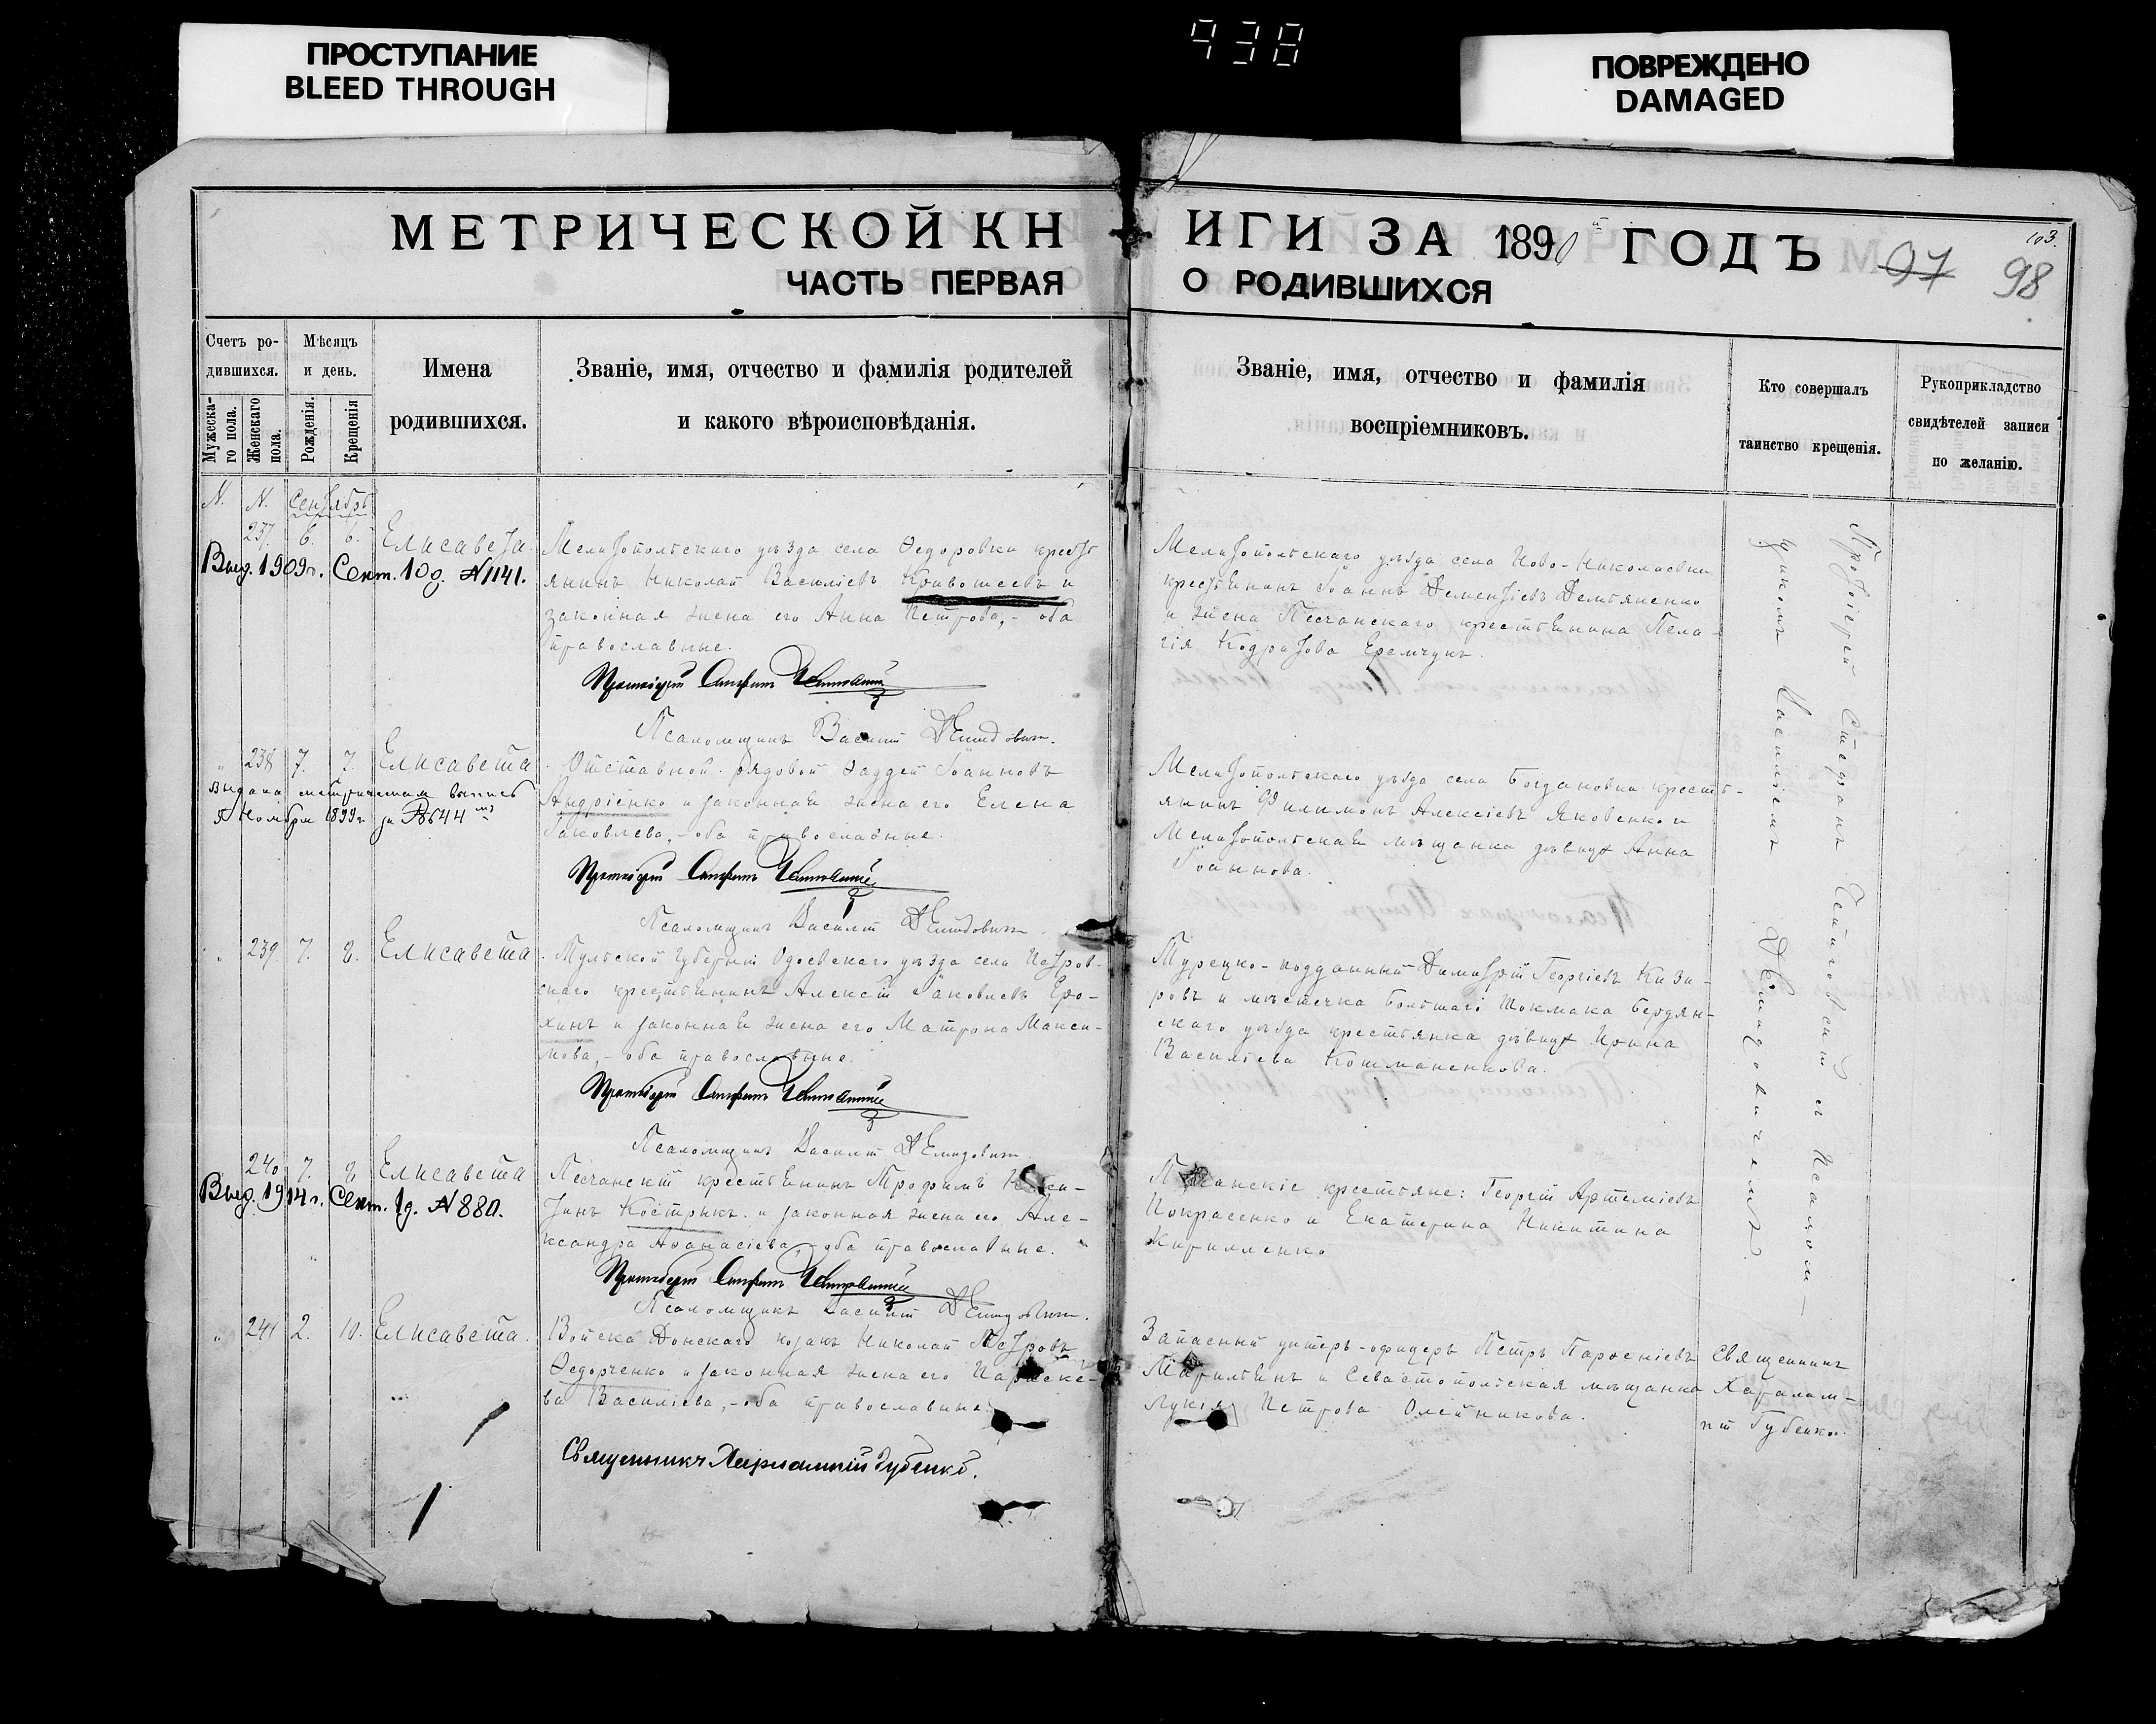 ПРОСТУПАНИЕ
BLEED THROUGH
938
ПОВРЕЖДЕНО
DAMAGED
МЕТРИЧЕСКОЙ КН
ИГИ ЗА 1890 й ГОДЪ
103.
97 98
ЧАСТЬ ПЕРВАЯ
О РОДИВШИХСЯ
Счетъ ро-
дившихся.
Мужеска-
го пола.
Женскаго
пола.
Мѣсяцъ
и день.
Рожденія.
Крещенія
Имена
родившихся.
Званіе, имя, отчество и фамилія родителей
и какого вѣроисповѣданія.
Званіе, имя, отчество и фамилія
воспріемниковъ.
Кто совершалъ
таинство крещенія.
Рукоприкладство
свидѣтелей записи
по желанію.
N. N. Сентябрь
237. 6. 6. Елисавета.
Выд. 1909 г. Сент. 10 д. N 1141.
Мелитопольскаго уѣзда села Ѳедоровки крест
янинъ Николай Василіевъ Кривошеевъ и
законная жена его Анна Петрова, - оба
православные.
Протоіерей Стефанъ
Псаломщикъ Василій Демидовичъ.
Мелитопольскаго уѣзда села Ново-Николаевки
крестьянинъ Іоаннъ Дементіевъ Демьяненко
и жена Песчанскаго крестьянина Пела-
гія Кодратова Еремчукъ.
" 238 7. 7. Елисавета
Выдана метрическая выпись
я Ноября 1899 г. за № 644 мъ
Отставной рядовой Ѳаддей Іоанновъ
Андріенко и законная жена его Елена
Іаковлева, - оба православные.
Протоіерей Стефанъ
Псаломщикъ Василій Демидовичъ
Мелитопольскаго уѣзда села Богдановки крест-
янинъ Филимонъ Алексіевъ Яковенко и
Мелитопольская мѣщанка дѣвица Анна
Іоаннова.
" 239 7. 8. Елисавета
Тульской губерніи Одоевскаго уѣзда села Петров-
скаго крестьянинъ Алексій Іаковлевъ Еро-
хинъ и законная жена его Матрона Макси-
мова, - оба православные.
Протоіерей Стефанъ
Псаломщикъ Василій Демидовичъ
Турецко-подданный Димитрій Георгіевъ Кази-
ровъ и мѣстечка Большаго Токмака Бердян-
скаго уѣзда крестьянка дѣвица Ирина
Василіева Кошманенкова.
240 7. 8. Елисавета
Выд. 1914 г. Сент. 1 д. N 880.
Песчанскій крестьянинъ Трофимъ
Кострыкъ и законная жена его Але-
ксандра Аѳанасіева, - оба православные.
Протоіерей Стефанъ
Псаломщикъ Василій Демидовичъ.
Песчанскіе крестьяне: Георгій Артеміевъ
Покрасенко и Екатерина Никитина
Кирилленко
" 241 2. 10. Елисавета.
Войска Донскаго козакъ Николай Петровъ
Ѳедорченко и законная жена его Параске-
ва Василіева, - оба православные.
Священникъ Харлампій Губенко.
Запасный унтеръ-офицеръ Петръ Парѳеніевъ
и Севастопольская мѣщанка
Лукія Петрова Олейникова.
Священникъ
Харалам-
пій Губенко.
Протоіерей Стефанъ и Псалом-
щикомъ Василіемъ Демидовичемъ.